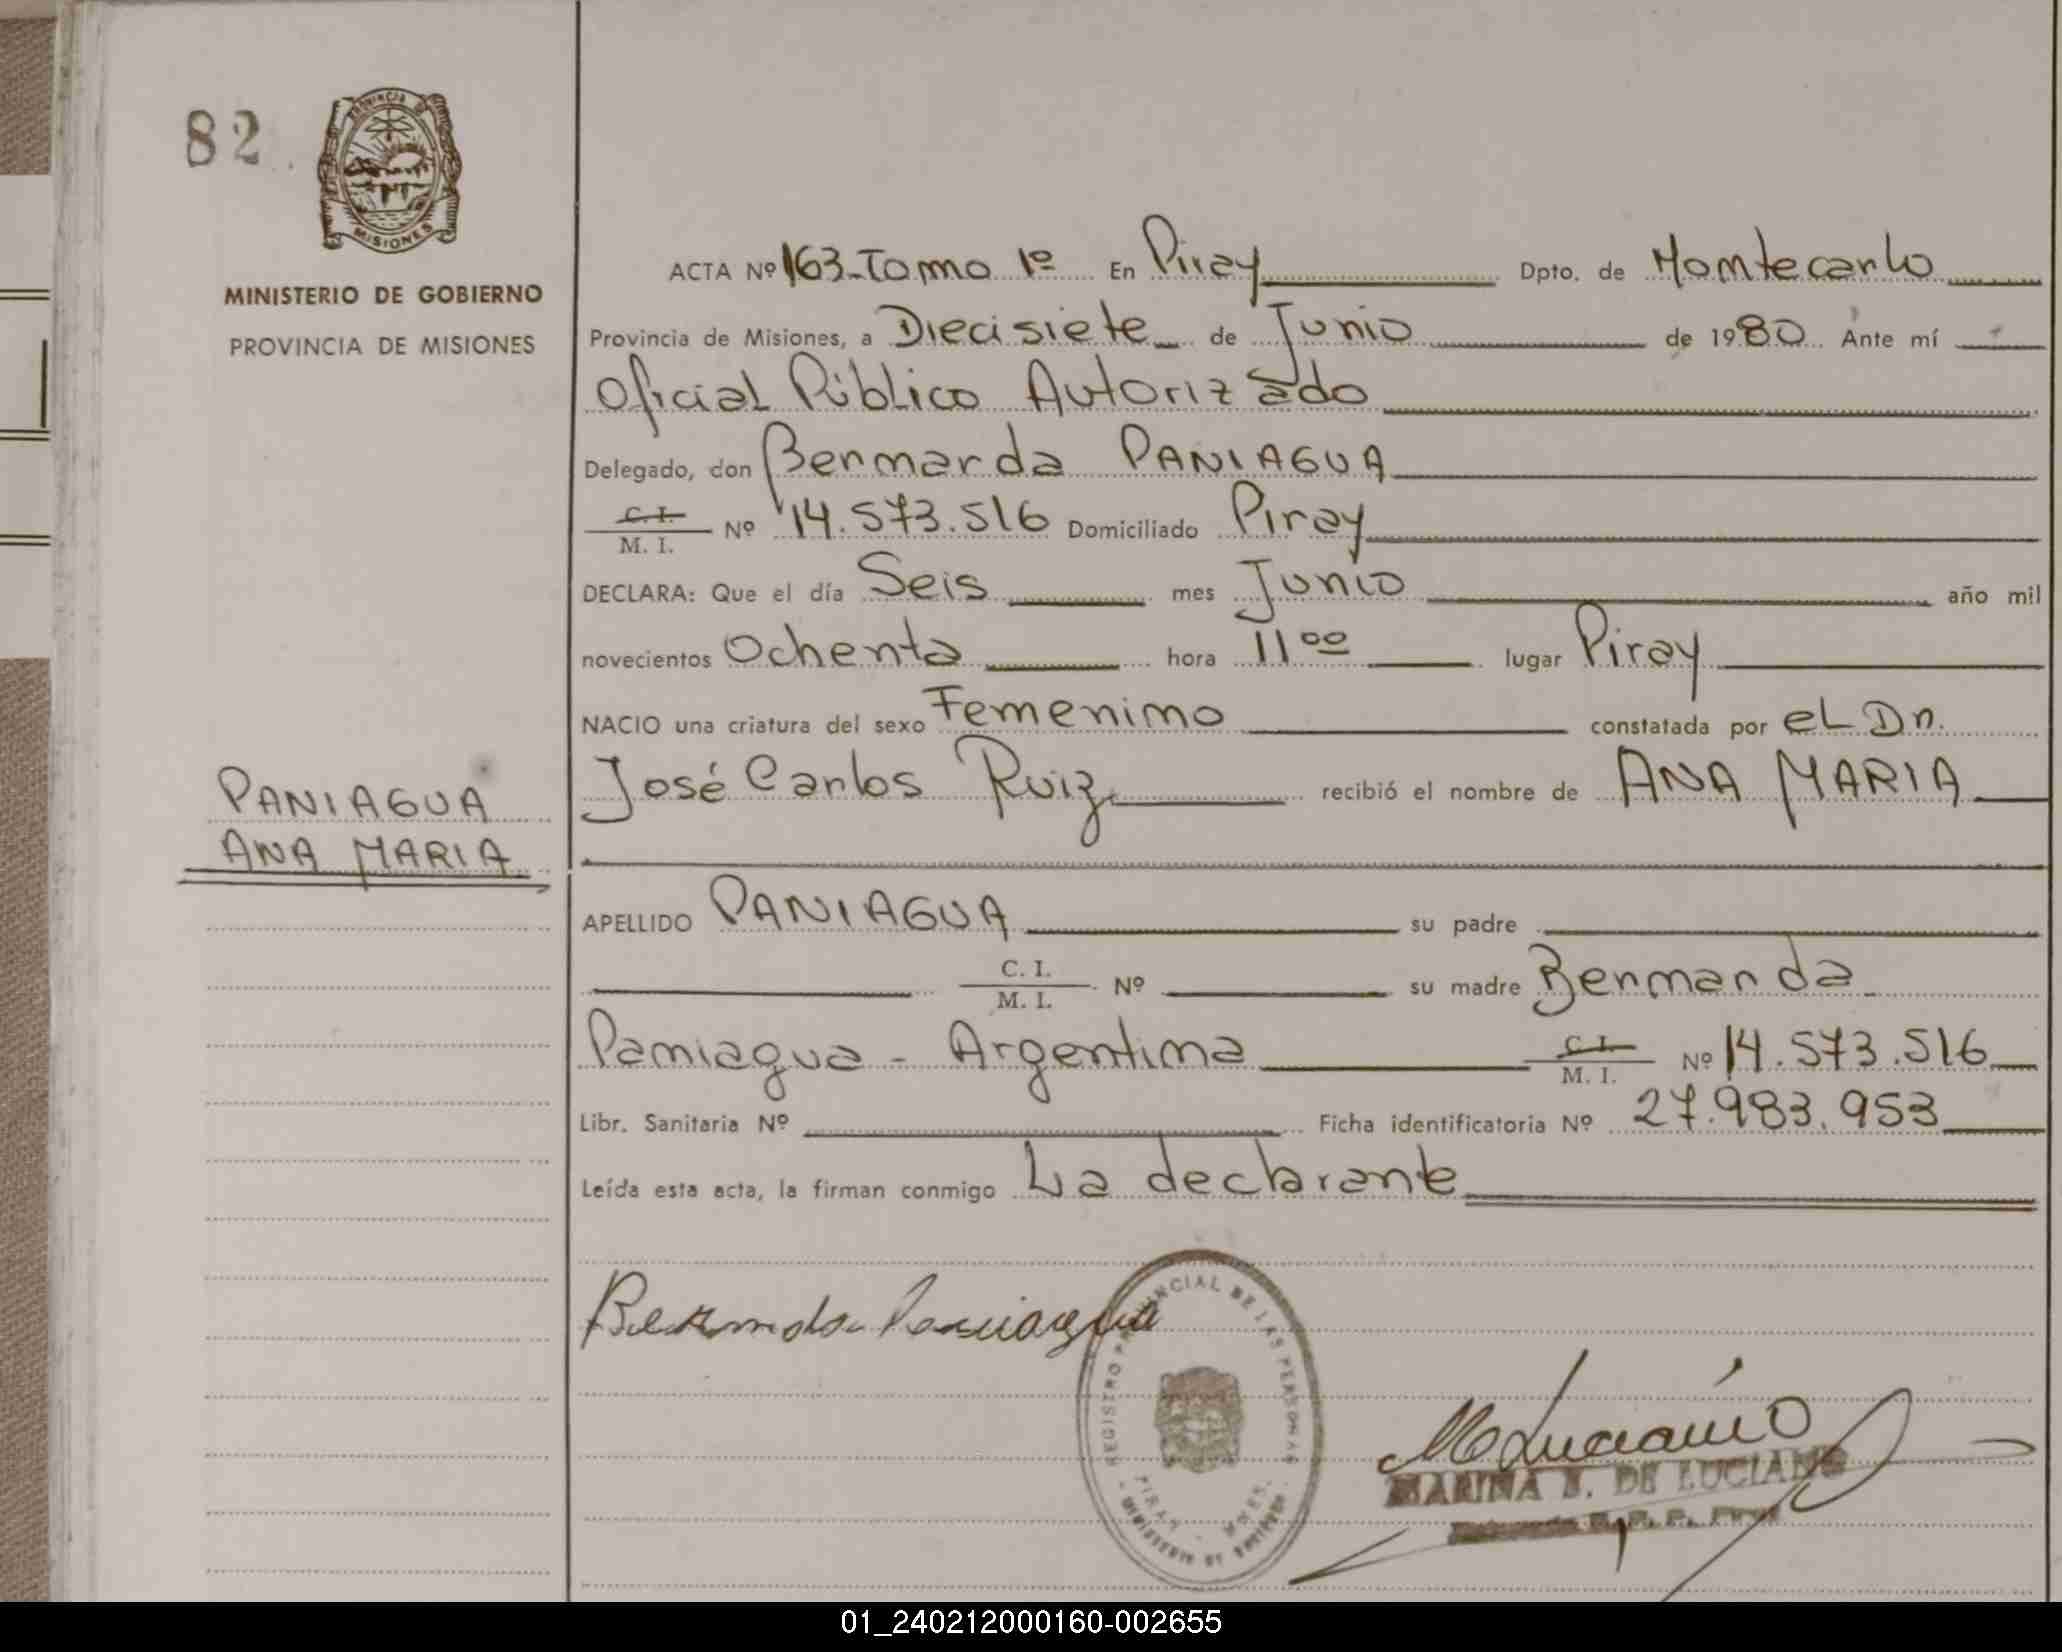 82
PROVINCIA DE
MISIONES
MINISTERIO DE GOBIERNO
PROVINCIA DE MISIONES
PANIAGUA
ANA MARIA
ACTA Nº 163-Tomo 1º En Piray Dpto. de Montecarlo
Provincia de Misiones, a Diecisiete de Junio de 1980 Ante mí
Oficial Público Autorizado
Delegado, don Bernarda PANIAGUA
C. I.
M. I. Nº 14.573.516 Domiciliado Piray
DECLARA: Que el día Seis mes Junio año mil
novecientos Ochenta hora 11ºº lugar Piray
NACIO una criatura del sexo Femenino constatada por el Dr.
José Carlos Ruiz recibió el nombre de ANA MARIA
APELLIDO PANIAGUA su padre
C. I.
M. I. Nº su madre Bernarda
Paniagua - Argentina C. I.
M. I. Nº 14.573.516
Libr. Sanitaria Nº Ficha identificatoria Nº 27.983.953
Leída esta acta, la firman conmigo La declarante
Bernarda Paniagua
REGISTRO PROVINCIAL DE LAS PERSONAS
PIRAY - MNES.
MINISTERIO DE GOBIERNO
MLuciano
MARINA DE LUCIANO
01_240212000160-002655